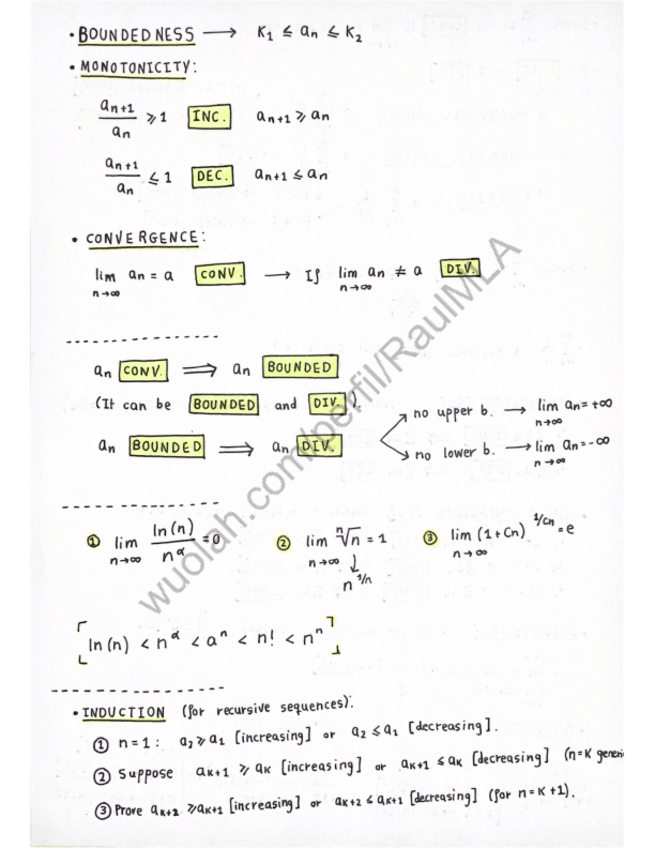 • BOUNDEDNESS ⟶ K₁ ≤ aₙ ≤ K₂
• MONOTONICITY:
aₙ₊₁/aₙ ≥ 1 INC. aₙ₊₁ ≥ aₙ
aₙ₊₁/aₙ ≤ 1 DEC. aₙ₊₁ ≤ aₙ
• CONVERGENCE:
lim n→∞ aₙ = a CONV. ⟶ If lim n→∞ aₙ ≠ a DIV.
aₙ CONV. ⟹ aₙ BOUNDED
(It can be BOUNDED and DIV.).
aₙ BOUNDED ⟹ aₙ DIV.
no upper b. ⟶ lim n→∞ aₙ = +∞
no lower b. ⟶ lim n→∞ aₙ = -∞
① lim n→∞ ln(n)/n^α = 0 ② lim n→∞ ⁿ√n = 1 ③ lim n→∞ (1+Cn)^1/Cn = e
↓
n^1/n
[ln(n) < n^α < aⁿ < n! < nⁿ]
• INDUCTION (for recursive sequences):
① n=1: a₂ ≥ a₁ [increasing] or a₂ ≤ a₁ [decreasing].
② Suppose aK+1 ≥ aK [increasing] or aK+1 ≤ aK [decreasing] (n=K generi
③ Prove aK+2 ≥ aK+1 [increasing] or aK+2 ≤ aK+1 [decreasing] (for n=K+1).
wuolah.com/perfil/RaulMLA